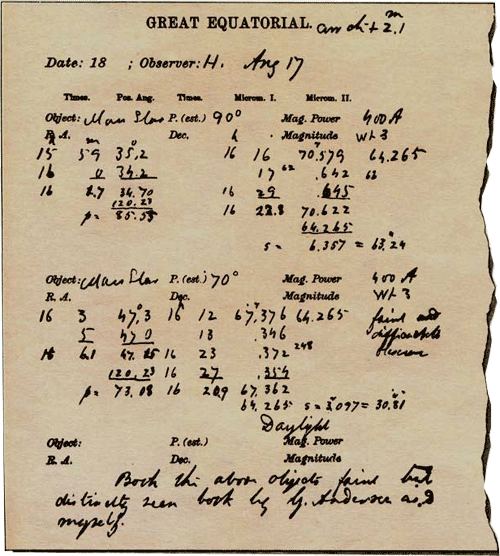 GREAT EQUATORIAL.
Date: 18 ; Observer: H. Aug 17
Times. Pos. Ang. Times. Microm. I. Microm. II.
Object: Mars Star P. (est.) 90° Mag. Power 400 A
R. A. Dec. Magnitude Wt 3
15 59 35,2 16 16 70,579 64.265
16 0 34.2 17 .642
16 34.70 16 29 .645
120.23 16 22.8 70.622
p = 64.265
s = 6.357 = 63.24
Object: Mars Star P. (est.) 70° Mag. Power 400 A
R. A. Dec. Magnitude Wt 3
16 3 47,3 16 12 67,376 64.265 faint and
5 47 0 13 .346 difficult to
16 23 .372 observe
120,23 16 27 .354
p = 73.08 16 67.362
64.265 s = 3,097 = 30.81
Daylight
Object: P. (est.) Mag. Power
R. A. Dec. Magnitude
Both the above objects faint but
distinctly seen both by G. Anderson and
myself.